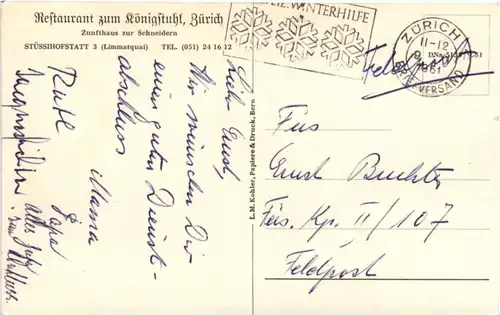 Restaurant zum Königstuhl, Zürich
Zunfthaus zur Schneidern
STÜSSIHOFSTATT 3 (Limmatquai) TEL. (051) 24 16 12
WINTERHILFE
ZÜRICH
11-12
1961
BRIEFVERSAND
Feldpost
Lieb Ernst,
Wir wünschen Dir
einen guten Dienst-
abschluss
Mama
Papa
Ruth
alles Gute
L.M. Kohler, Papiere & Druck, Bern
Füs
Ernst Buchter
Füs. Kp. II/107
Feldpost